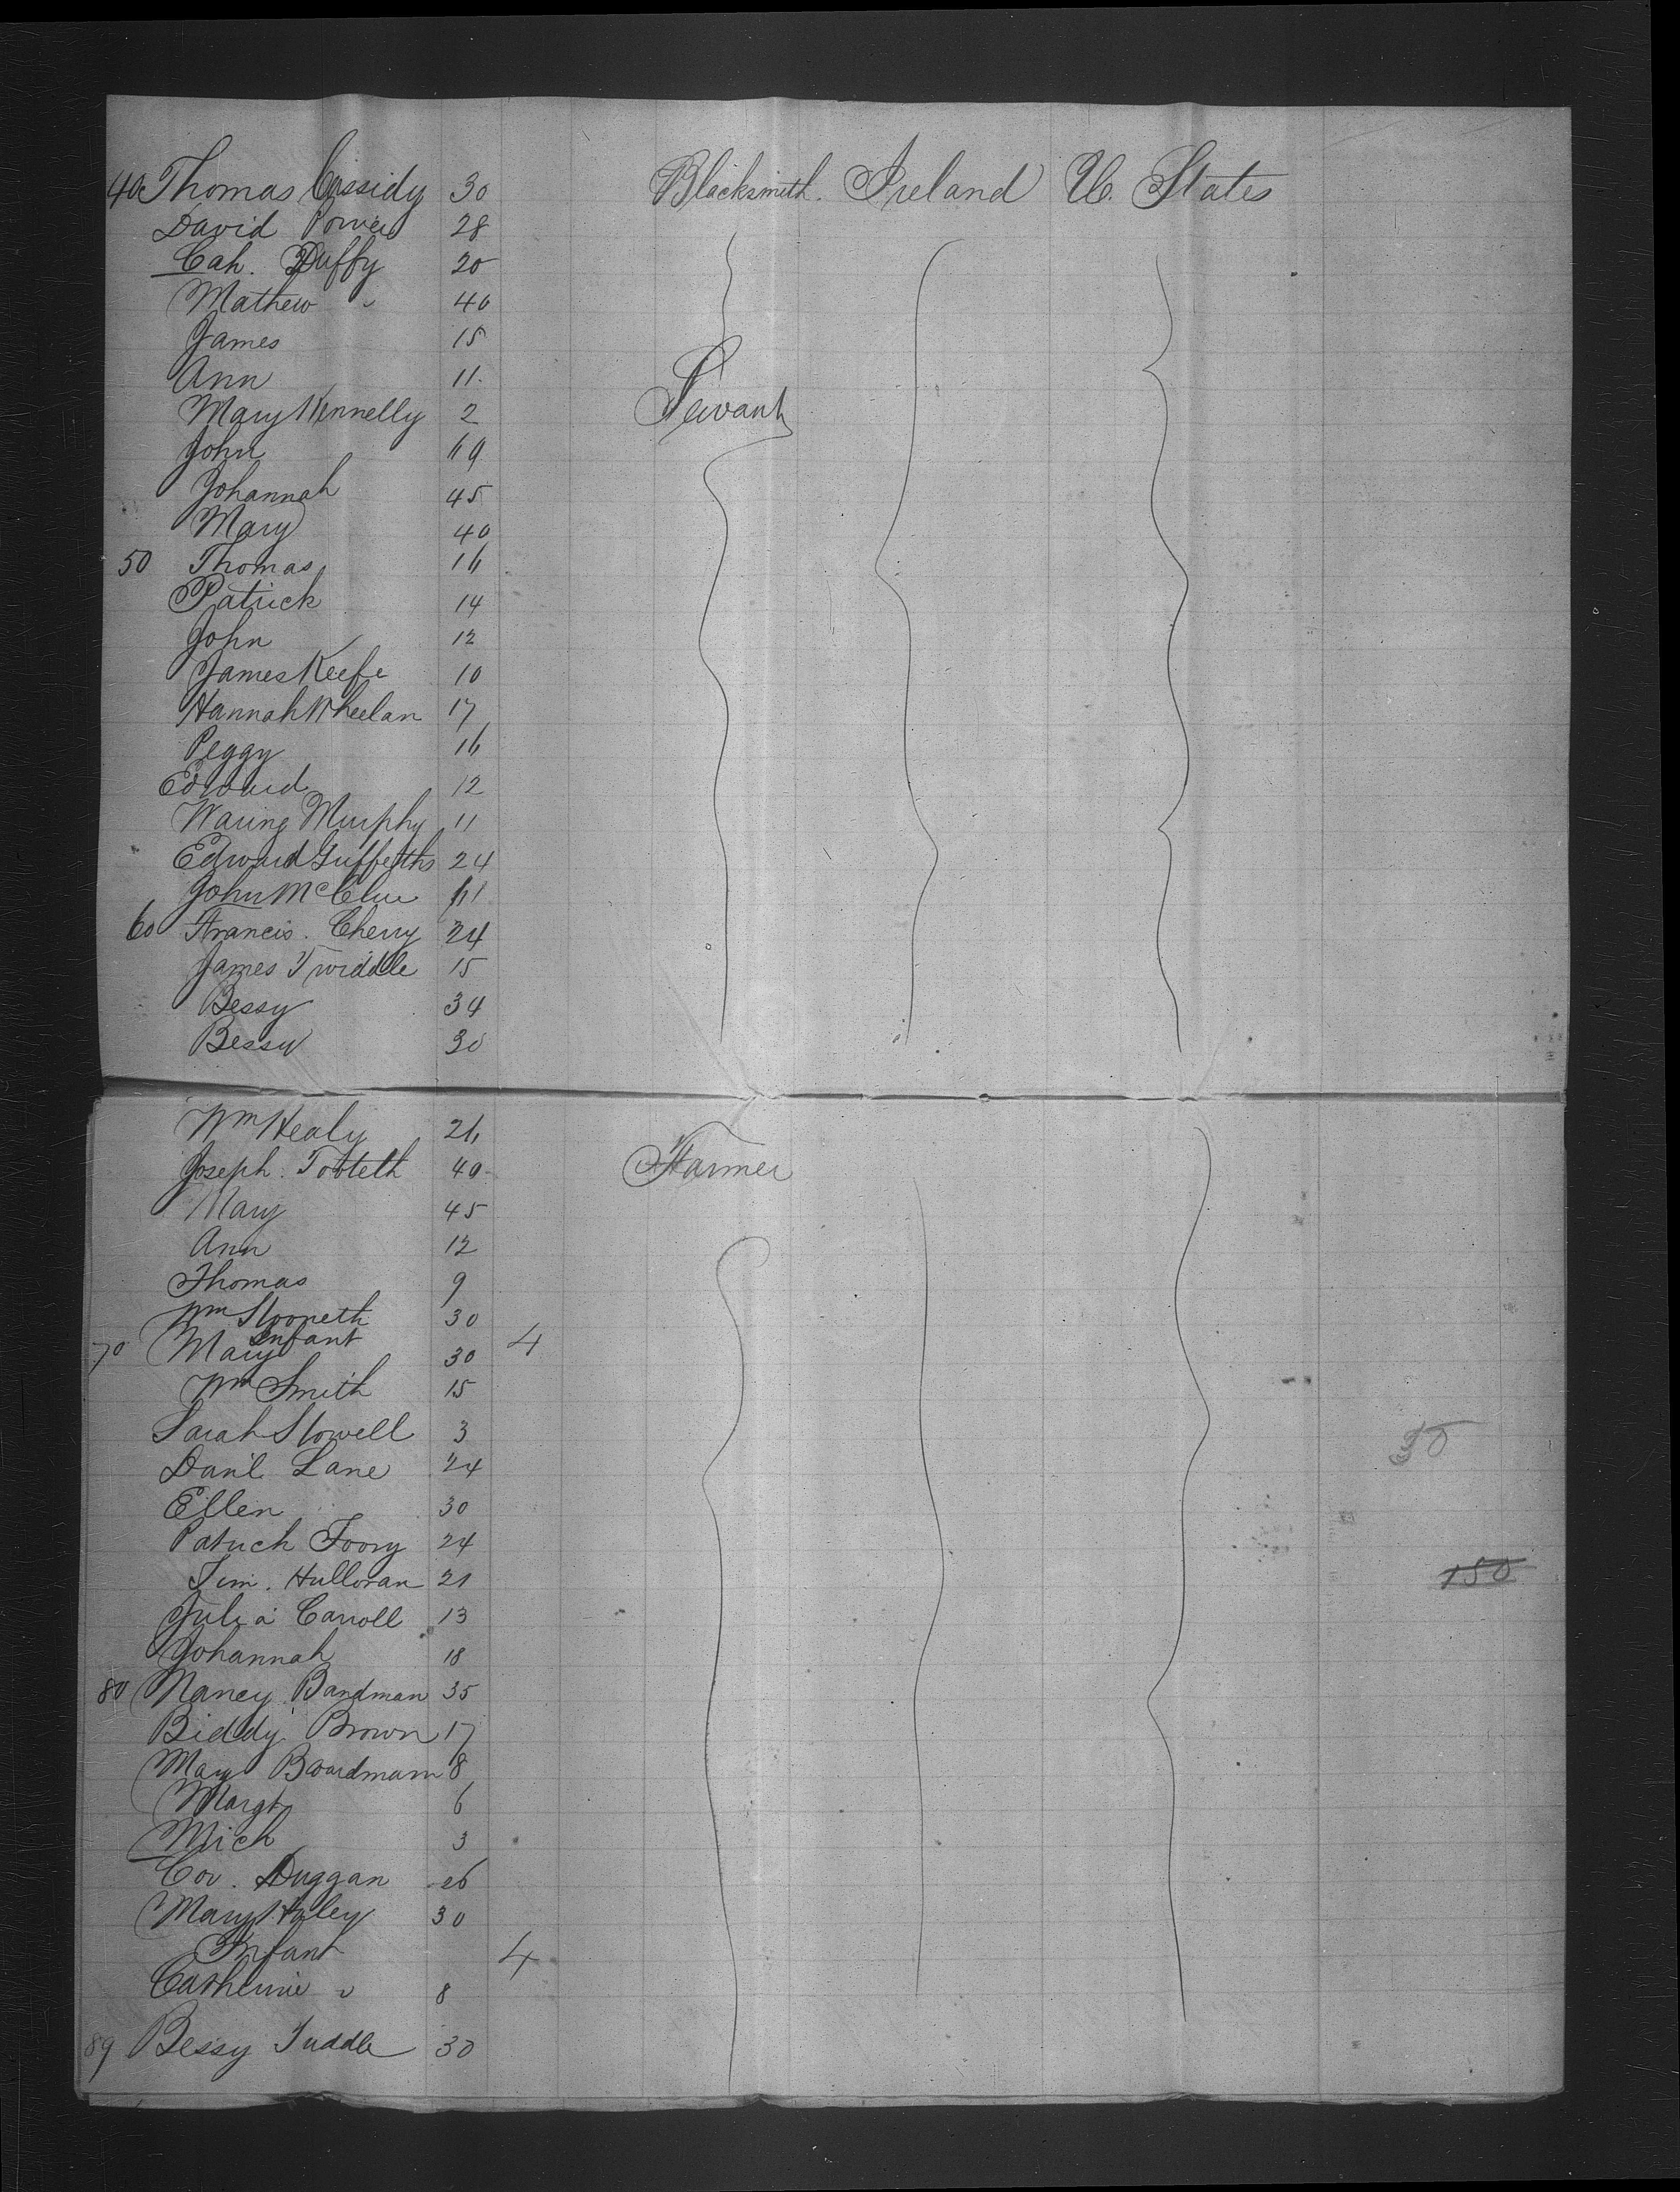 40 Thomas Cassidy 30 Blacksmith. Ireland U. States
David Power 28
Cah. Duffy 20
Mathew " 40
James 15
Ann 11
Mary Kennelly 2 Servant
John 19
Johannah 45
Mary 40
50 Thomas 16
Patrick 14
John 12
James Keefe 10
Hannah Wheelan 17
Peggy 16
Edward 12
Waring Murphy 11
Edward Guffeths 24
John McClue
60 Francis. Cherry 24
James Twiddle 15
Bessy 34
Bessy 30
Wm Healy 26
Joseph. Tooteth 40 Farmer
Mary 45
Ann 12
Thomas 9
Wm 30
Infant
70 Mary 30 4
Wm Smith 15
Sarah Stowell 3
50
Danl Lane 24
Ellen 30
Patrick Foory 24
Tim. Hulloran 21
150
Julia Carroll 13
Johannah 18
80 Nancy Bandman 35
Biddy Brown 17
Mary Boardmam 8
Margt 6
Mich 3
Cor. Duggan 26
Mary Haley 30
Infant 4
Catherine " 8
89 Bessy Tuddle 30